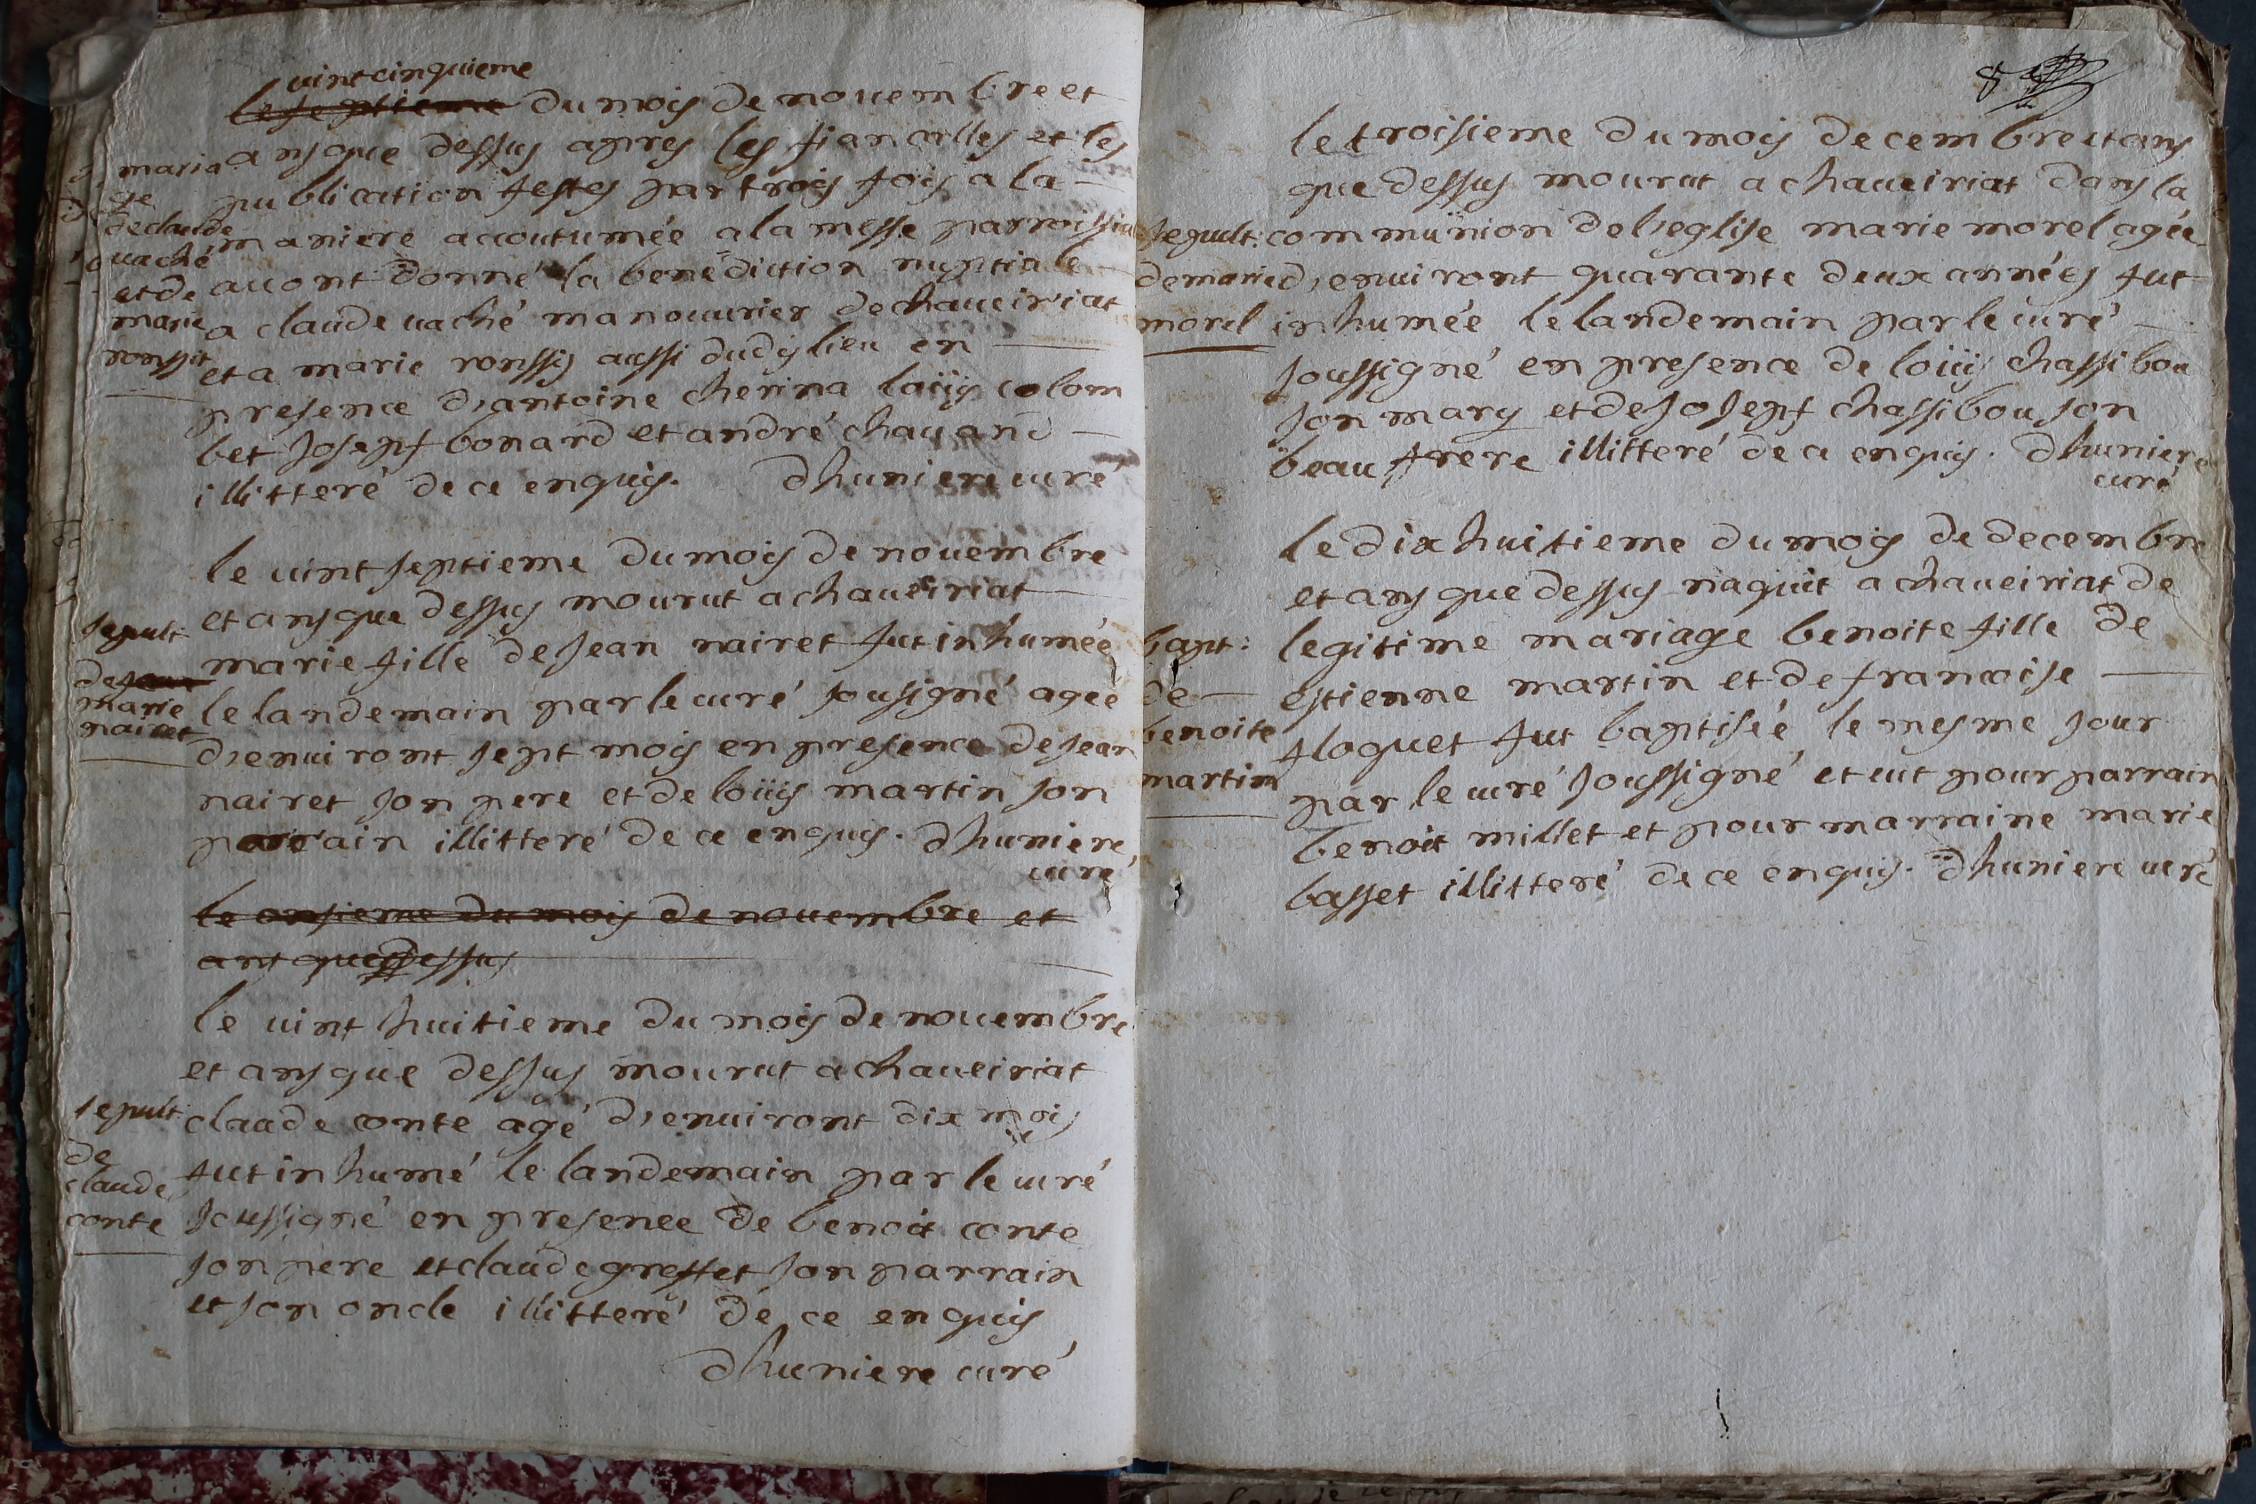 vintcinquieme
le septieme du mois de novembre et
maria
ge
de claude
vaché
et de
marie
ronssit
ans que dessus apres les fiancalles et les
publication festes par trois fois a la
maniere accoutumée a la messe parroissia
avont donné la benediction nuptiale
a claude vaché manouvrier de chaveiriat
et a marie ronssis aussi dudis lieu en
presence d'antoine cherina loüys colom
bet Joseph bonard et andré chavand
illitteré de ce enquis. dhuniere curé
le vint septieme du mois de novembre
et ans que dessus mourut a chaveiriat
sepult:
de jean
marie
nairet
marie fille de Jean nairet fut inhumée
le landemain par le curé sousigné ageé
d'environt sept mois en presence de Jean
nairet son pere et de loüis martin son
parrain illitteré de ce enquis. dhuniere
curé
le onsieme du mois de novembre et
ant que dessus
le vint huitieme du mois de novembre
et ans que dessus mourut a chaveiriat
sepult:
de
claude
conte
claude conte agé d'environt dix mois
fut inhumé le landemain par le curé
soussigné en presence de benoit conte
son pere et claude greffet son parrain
et son oncle illitteré de ce enquis
dhuniere curé
8
le troisieme du mois decembre et ans
que dessus mourut a chaveiriat dans la
sepult:
de marie
morel
communion de l'eglise marie morel agée
d'environt quarante deux années fut
inhumée le landemain par le curé
soussigné en presence de loüis chassibou
son mary et de Joseph chassibou son
beau frere illitteré de ce enquis. dhuniere
curé
le dix huitieme du mois de decembre
et ans que dessus naquit a chaveiriat de
bapt:
de
benoite
martin
legitime mariage benoite fille de
estienne martin et de francoise
floquet fut baptisée le mesme jour
par le curé soussigné et eut pour parrain
benoit millet et pour marraine marie
basset illitteré de ce enquis. dhuniere curé